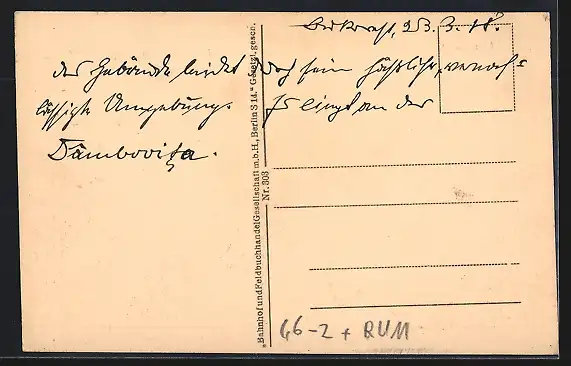 Bukarest, 23.3.18.
Das Gebäude leidet durch sein häßliche, vernach=
lässigte Umgebung. Es liegt an der
Dâmbovița.
„Bahnhof und Feldbuchhandel Gesellschaft m.b.H., Berlin S 14." Gesetzl. gesch.
Nr. 303
66-2 + RUM